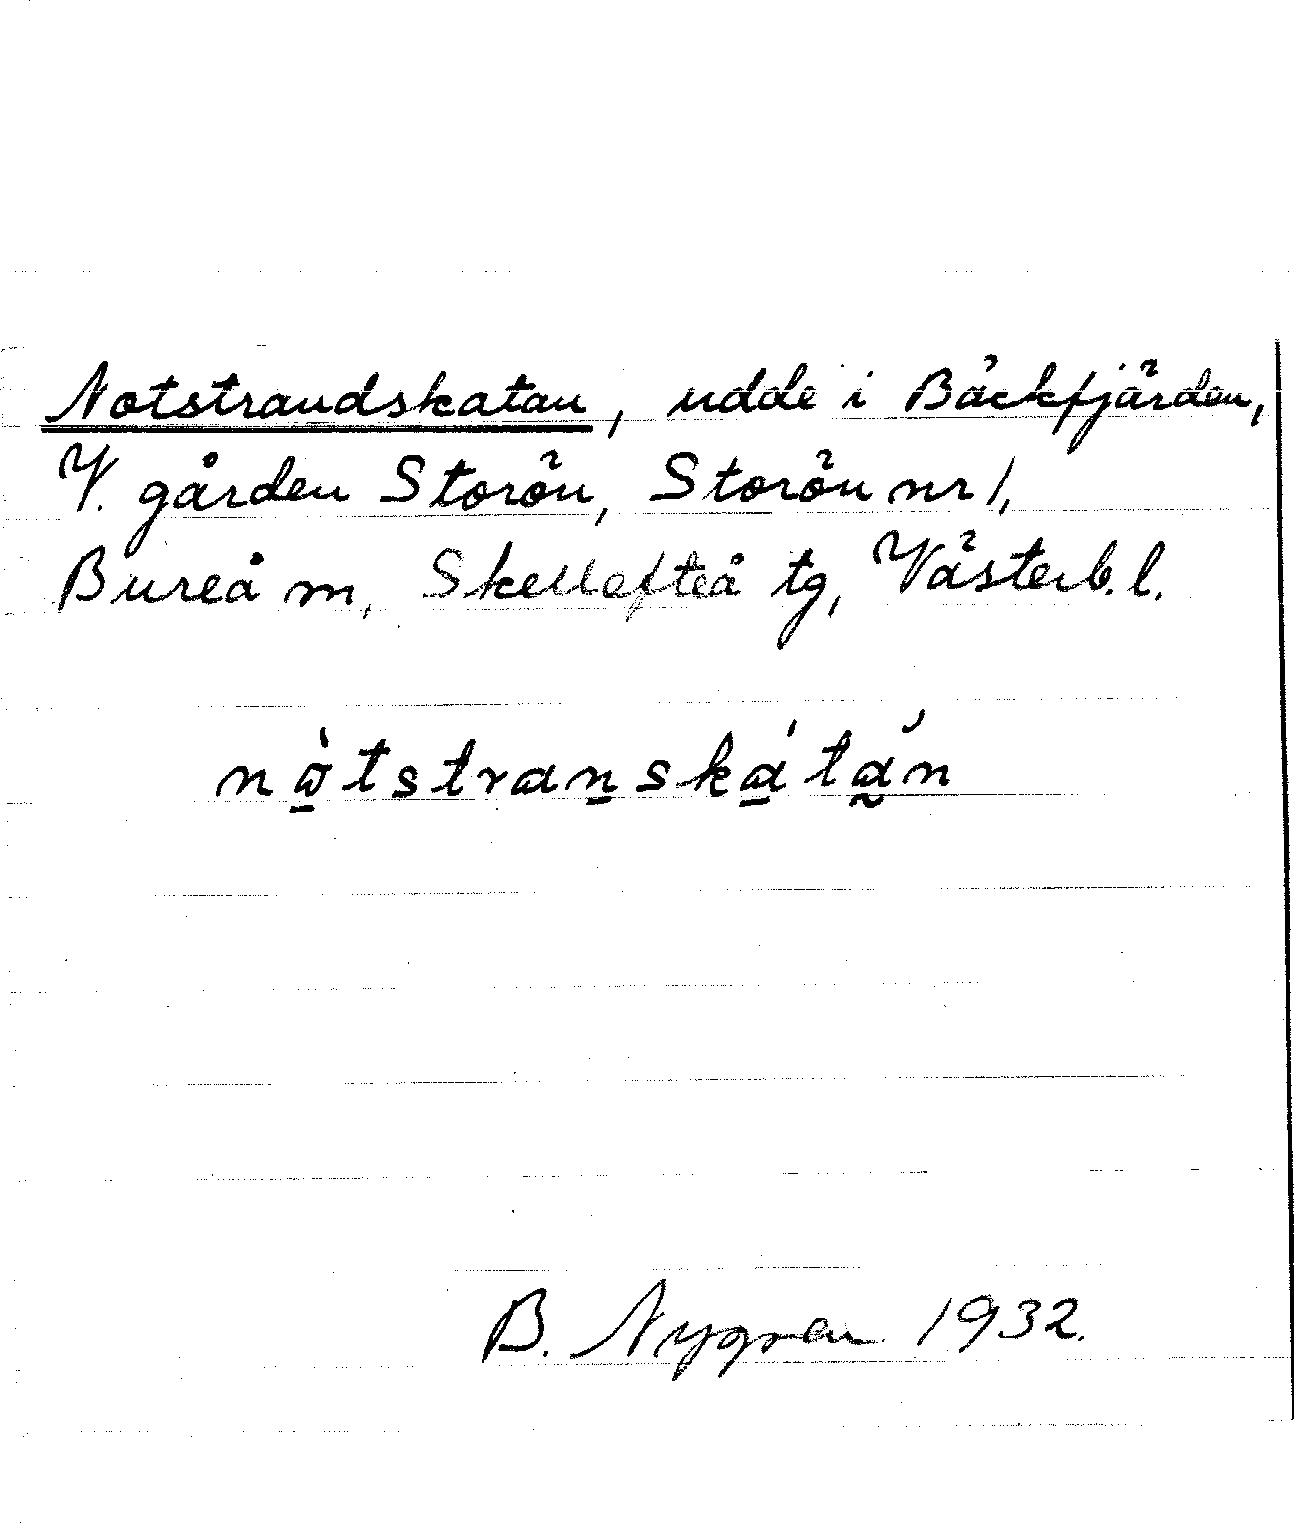 Notstrandskatan, udde i Bäckfjärden,
V. gården Storön, Storön nr 1,
Bureå m, Skellefteå tg, Västerb. l.
nò̱tstraṉská̱tã̰́n
B. Nygren 1932.